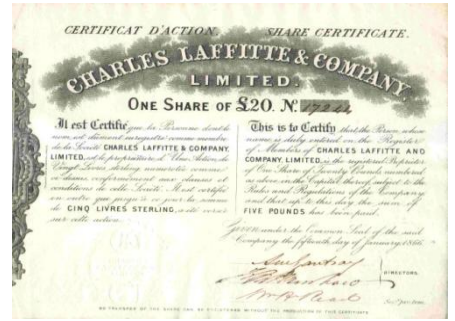 CERTIFICAT D'ACTION. SHARE CERTIFICATE.
CHARLES LAFFITTE & COMPANY
LIMITED.
ONE SHARE OF £20. No.
Il est Certifié que la Personne dont le
nom est dûment enregistré comme membre
de la Société CHARLES LAFFITTE & COMPANY,
LIMITED, est le propriétaire d'Une Action, de
Vingt Livres sterling numérotée comme
ci-dessus, conformément aux clauses et
conditions de cette Société. Il est certifié
en outre que jusqu'à ce jour la somme
de CINQ LIVRES STERLING a été versée
sur cette action.
This is to Certify that the Person whose
name is duly entered on the Register
of Members of CHARLES LAFFITTE AND
COMPANY, LIMITED, is the registered Proprietor
of One Share of Twenty Pounds numbered
as above in the Capital thereof subject to the
Rules and Regulations of the Company
and that up to this day the sum of
FIVE POUNDS has been paid.
Given under the Common Seal of the said
Company the fifteenth day of January, 1866.
DIRECTORS.
NO TRANSFER OF THE SHARE CAN BE REGISTERED WITHOUT THE PRODUCTION OF THIS CERTIFICATE.